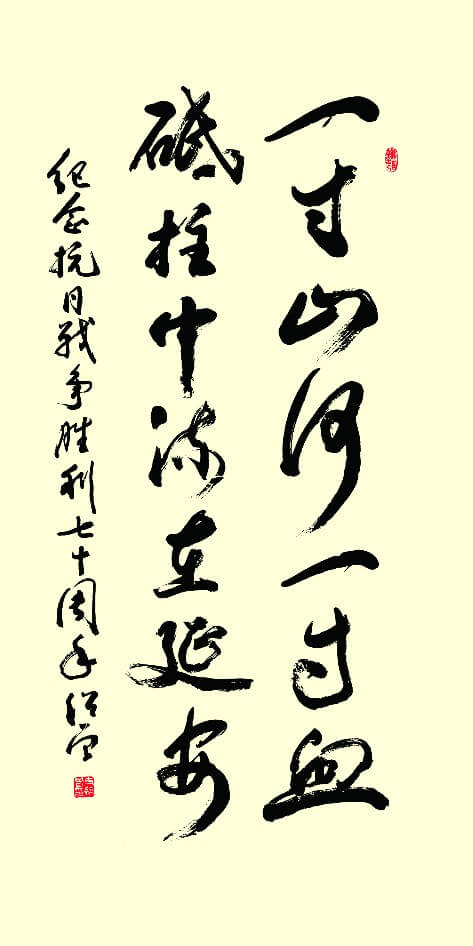 一寸山河一寸血
砥柱中流在延安
纪念抗日战争胜利七十周年